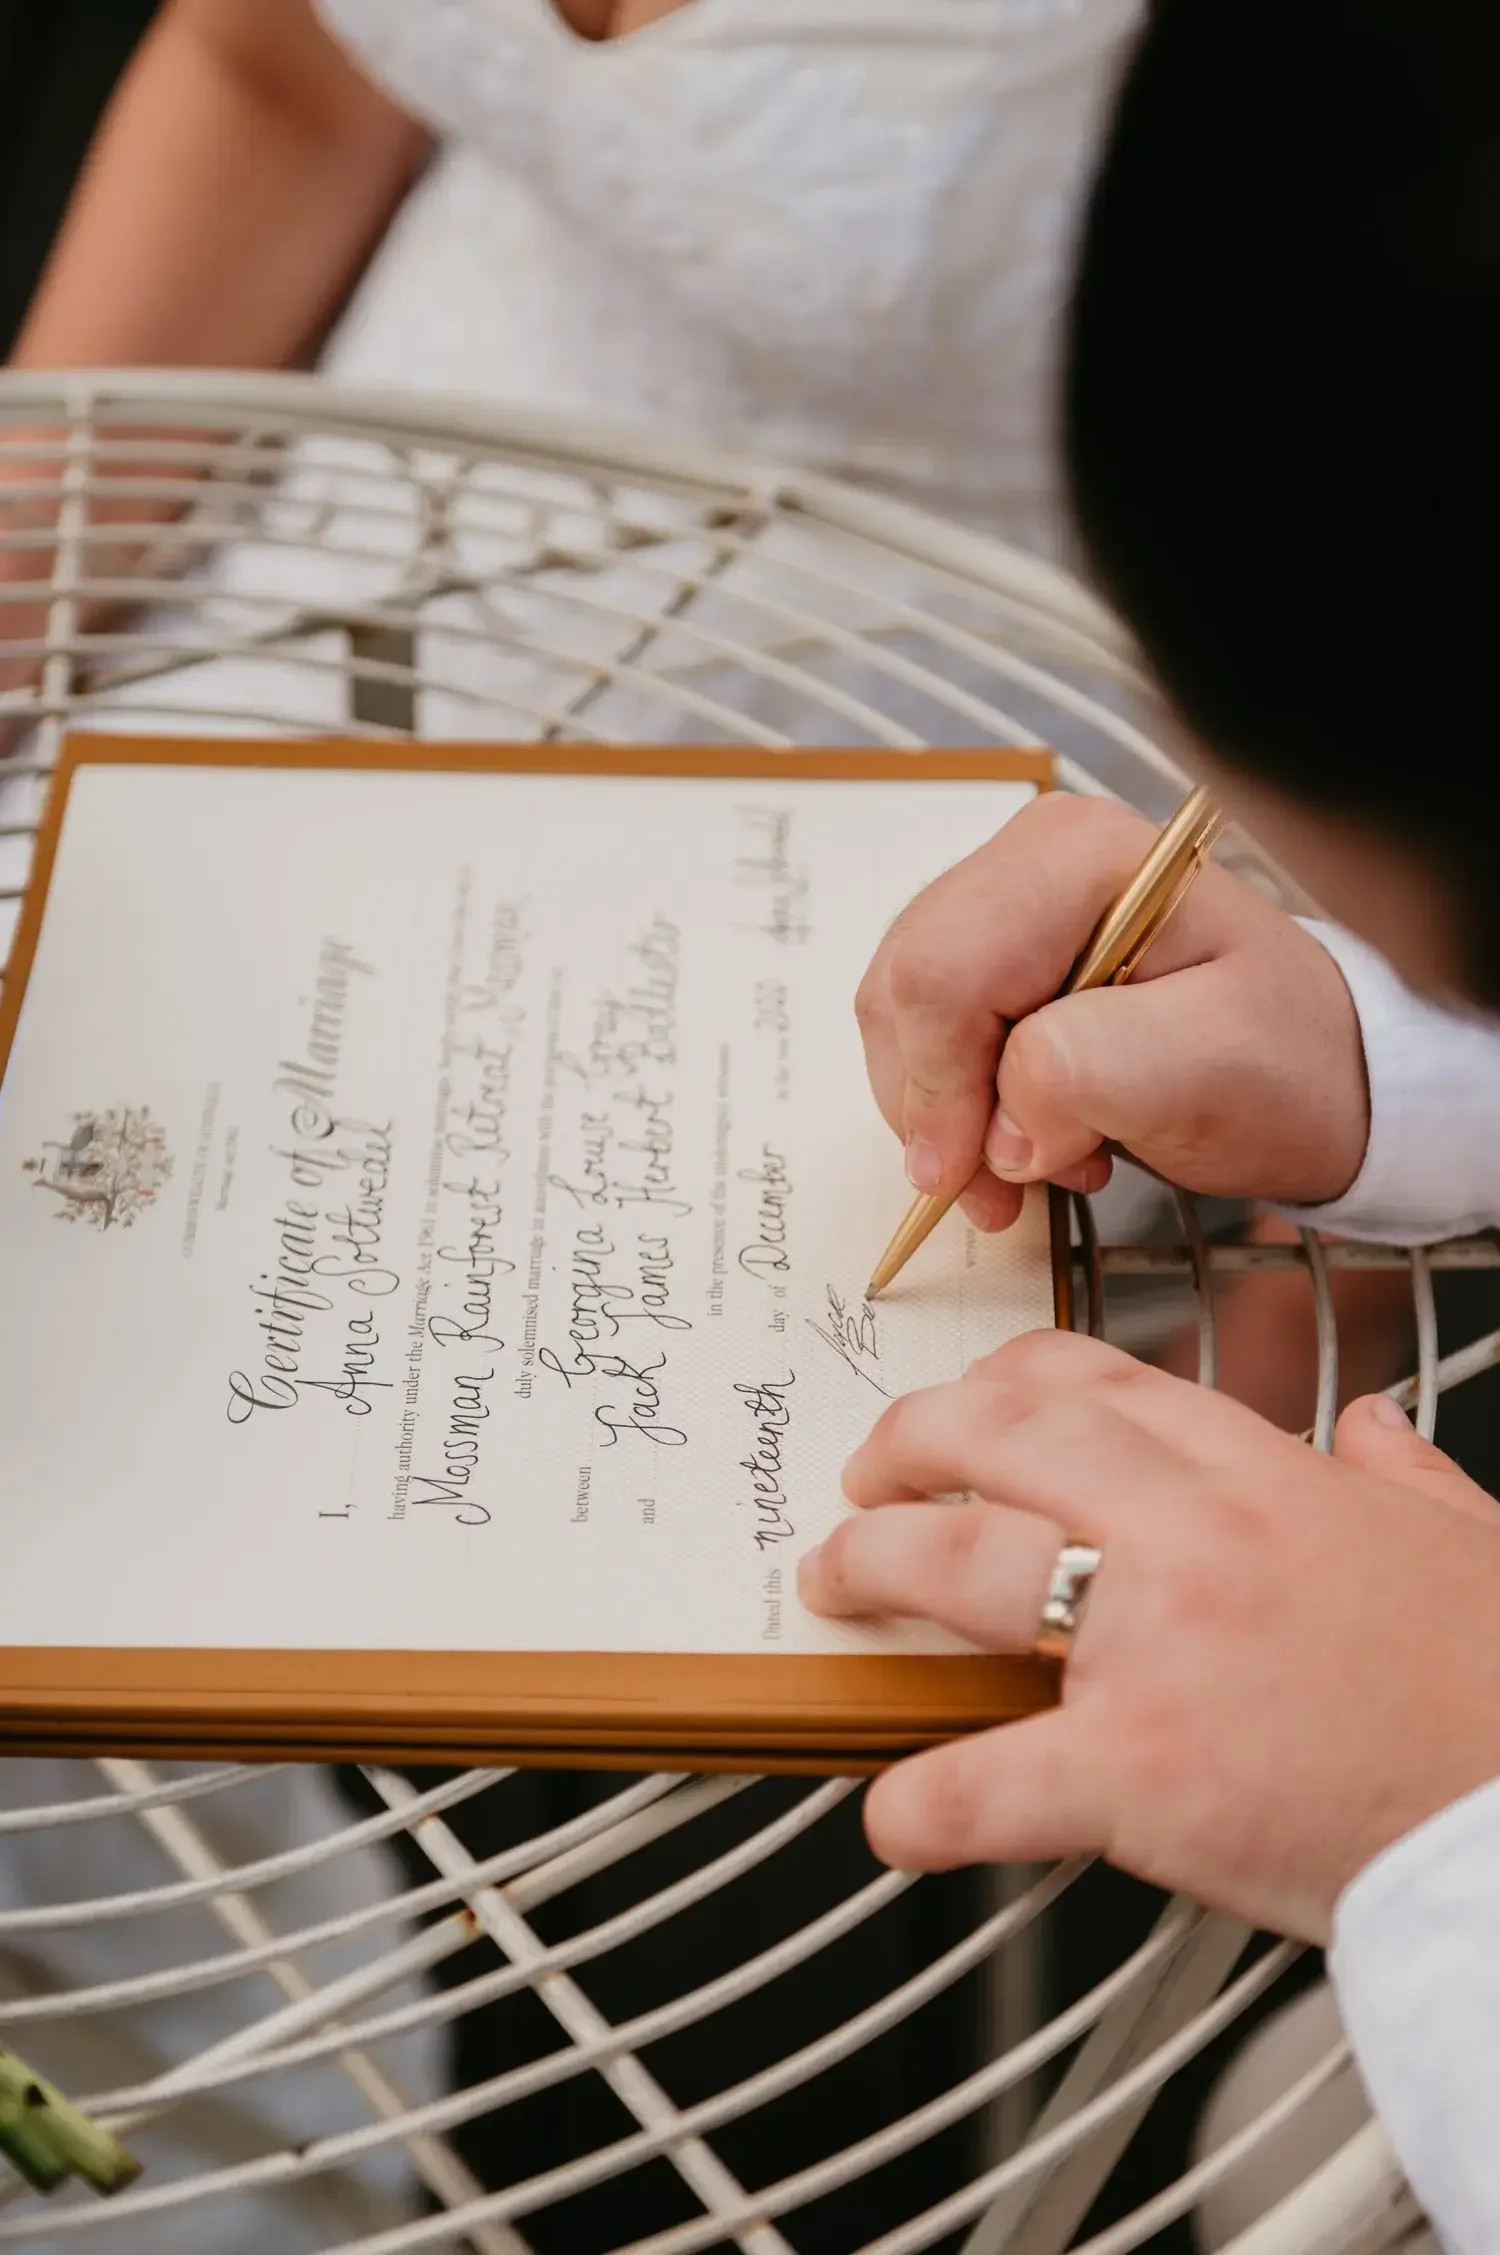 COMMONWEALTH OF AUSTRALIA
Certificate of Marriage
I, Anna Soltwedel
having authority under the Marriage Act 1961 to solemnise marriages,
Mossman Rainforest Retreat Mossman
duly solemnised marriage in accordance with the
between Georgina Louise Gray
and Jack James Herbert
in the presence of the undersigned witnesses
Dated this nineteenth day of December in the year
Jack